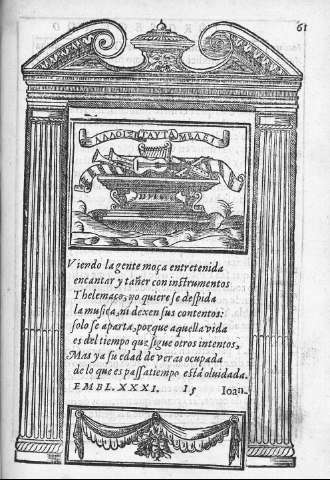 61
ΑΛΛΟΙΣ ΤΑΥΤΑ ΜΕΛΕΙ
Viendo la gente moça entretenida
en cantar y tañer con instrumentos
Thelemaco, no quiere se despida
la musica, ni dexen sus contentos:
solo se aparta, porque aquella vida
es del tiempo que sigue otros intentos,
Mas ya su edad de veras ocupada
de lo que es passatiempo está oluidada.
EMBL. XXXI. I5 Ioan.